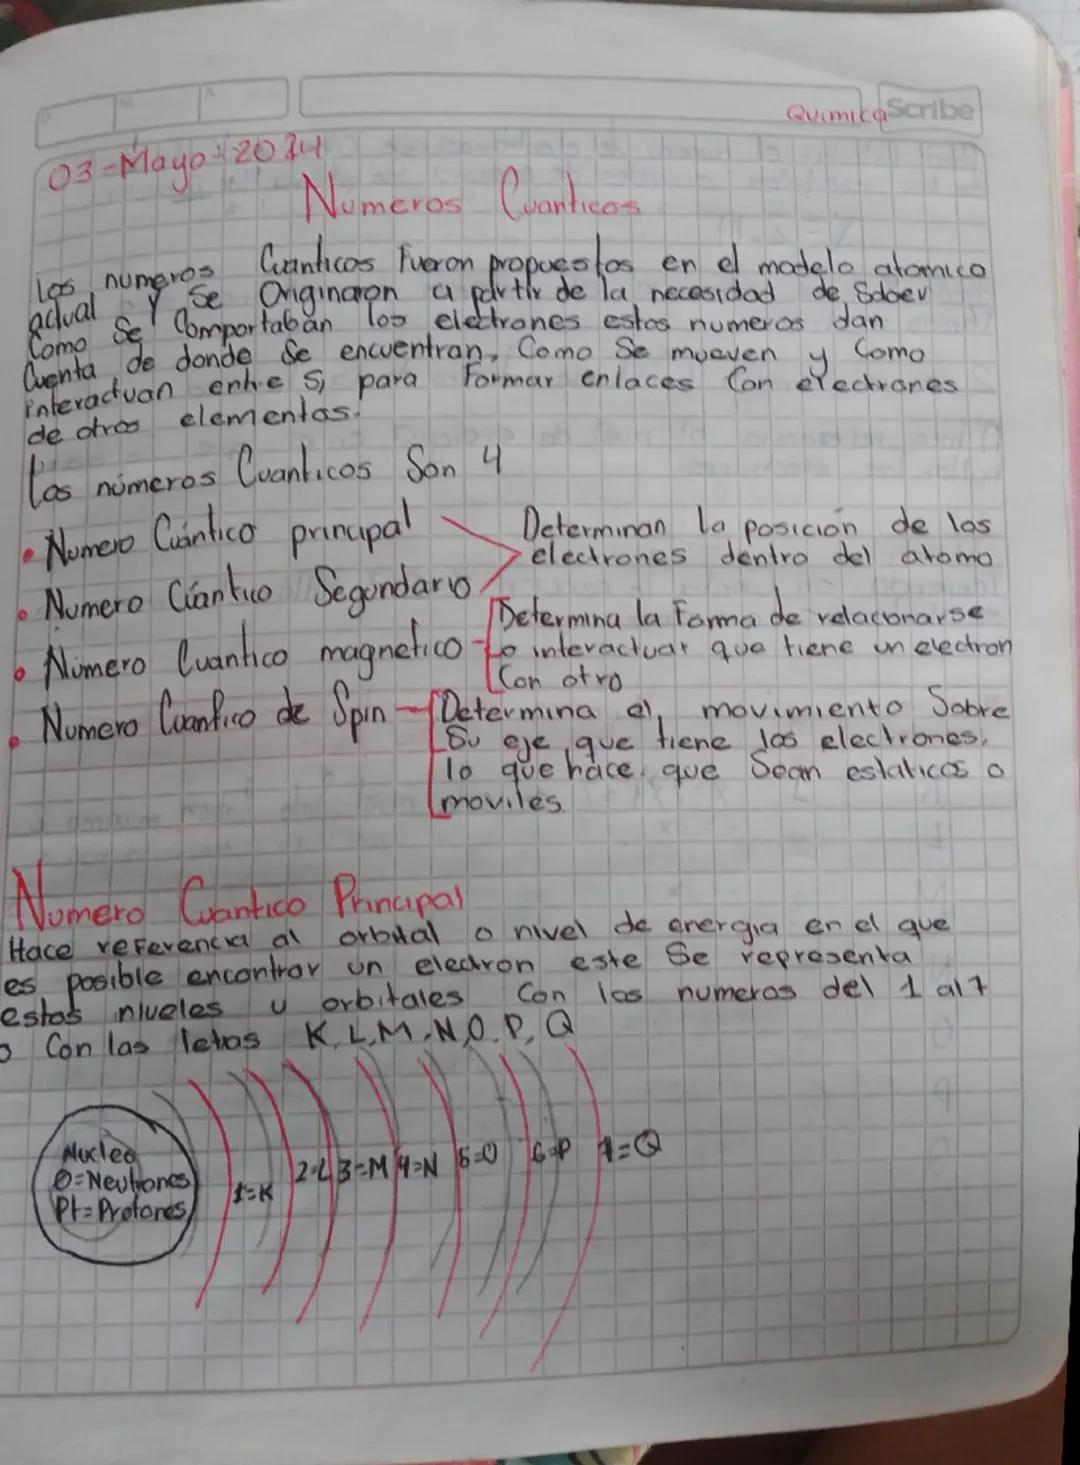 D M A
Quimica Scribe
03-Mayo-2024
Numeros Cuanticos
Los numeros Cuanticos Fueron propuestos en el modelo atomico
actual Y Se Originaron a partir de la necesidad de Saber
Como Se Comportaban los electrones estos numeros dan
Cuenta de donde Se encuentran, Como Se mueven y Como
interactuan entre Si para Formar enlaces Con electrones
de otros elementos.
Los números Cuanticos Son 4
• Numero Cuántico principal
Determinan la posición de los
electrones dentro del atomo
• Numero Cúantico Segundario
• Número Cuantico magnetico
Determina la Forma de relacionarse
o interactuar que tiene un electron
Con otro
• Numero Cuantico de Spin
Determina el movimiento Sobre
Su eje que tiene los electrones,
lo que hace que Sean estaticos o
moviles
Numero Cuantico Principal
Hace referencia al orbital o nivel de energia en el que
es posible encontrar un electron este Se representa
estos niveles u orbitales Con los numeros del 1 al 7
o Con las letras K, L, M, N, O, P, Q
Nucleo
O=Neutrones
P+=Protones
1=K 2=L 3=M 4=N 5=O 6=P 7=Q